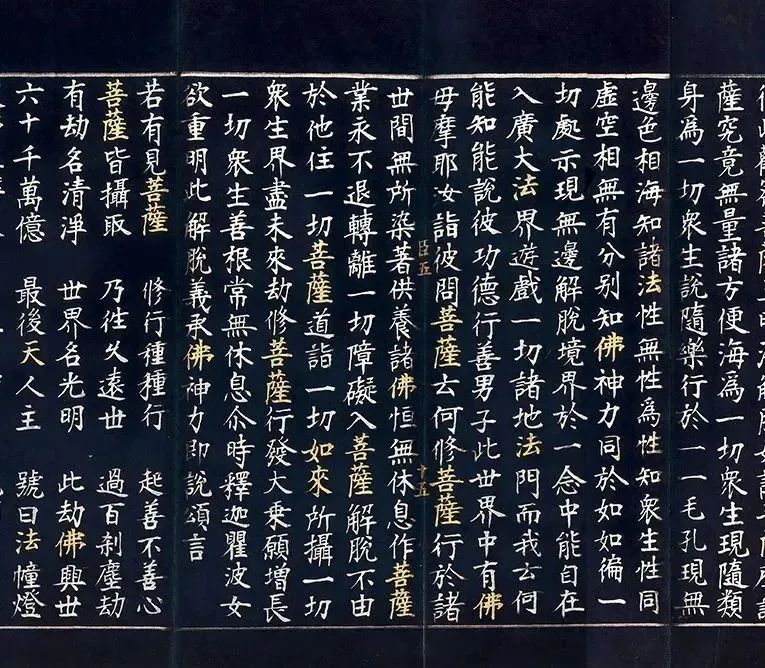 薩究竟無量諸方便海爲一切衆生現隨類
身爲一切衆生說隨樂行於一一毛孔現無
邊色相海知諸法性無性爲性知衆生性同
虛空相無有分別知佛神力同於如如徧一
切處示現無邊解脫境界於一念中能自在
入廣大法界遊戲一切諸地法門而我云何
能知能說彼功德行善男子此世界中有佛
毋摩耶汝詣彼問菩薩云何修菩薩行於諸
臣五 十五
世間無所染著供養諸佛恒無休息作菩薩
業永不退轉離一切障礙入菩薩解脫不由
於他住一切菩薩道詣一切如來所攝一切
衆生界盡未來劫修菩薩行發大乘願增長
一切衆生善根常無休息尒時釋迦瞿波女
欲重明此解脫義承佛神力即說頌言
若有見菩薩 修行種種行 起善不善心
菩薩皆攝取 乃往久遠世 過百剎塵劫
有劫名清淨 世界名光明 此劫佛興世
六十千萬億 最後天人主 號曰法幢燈